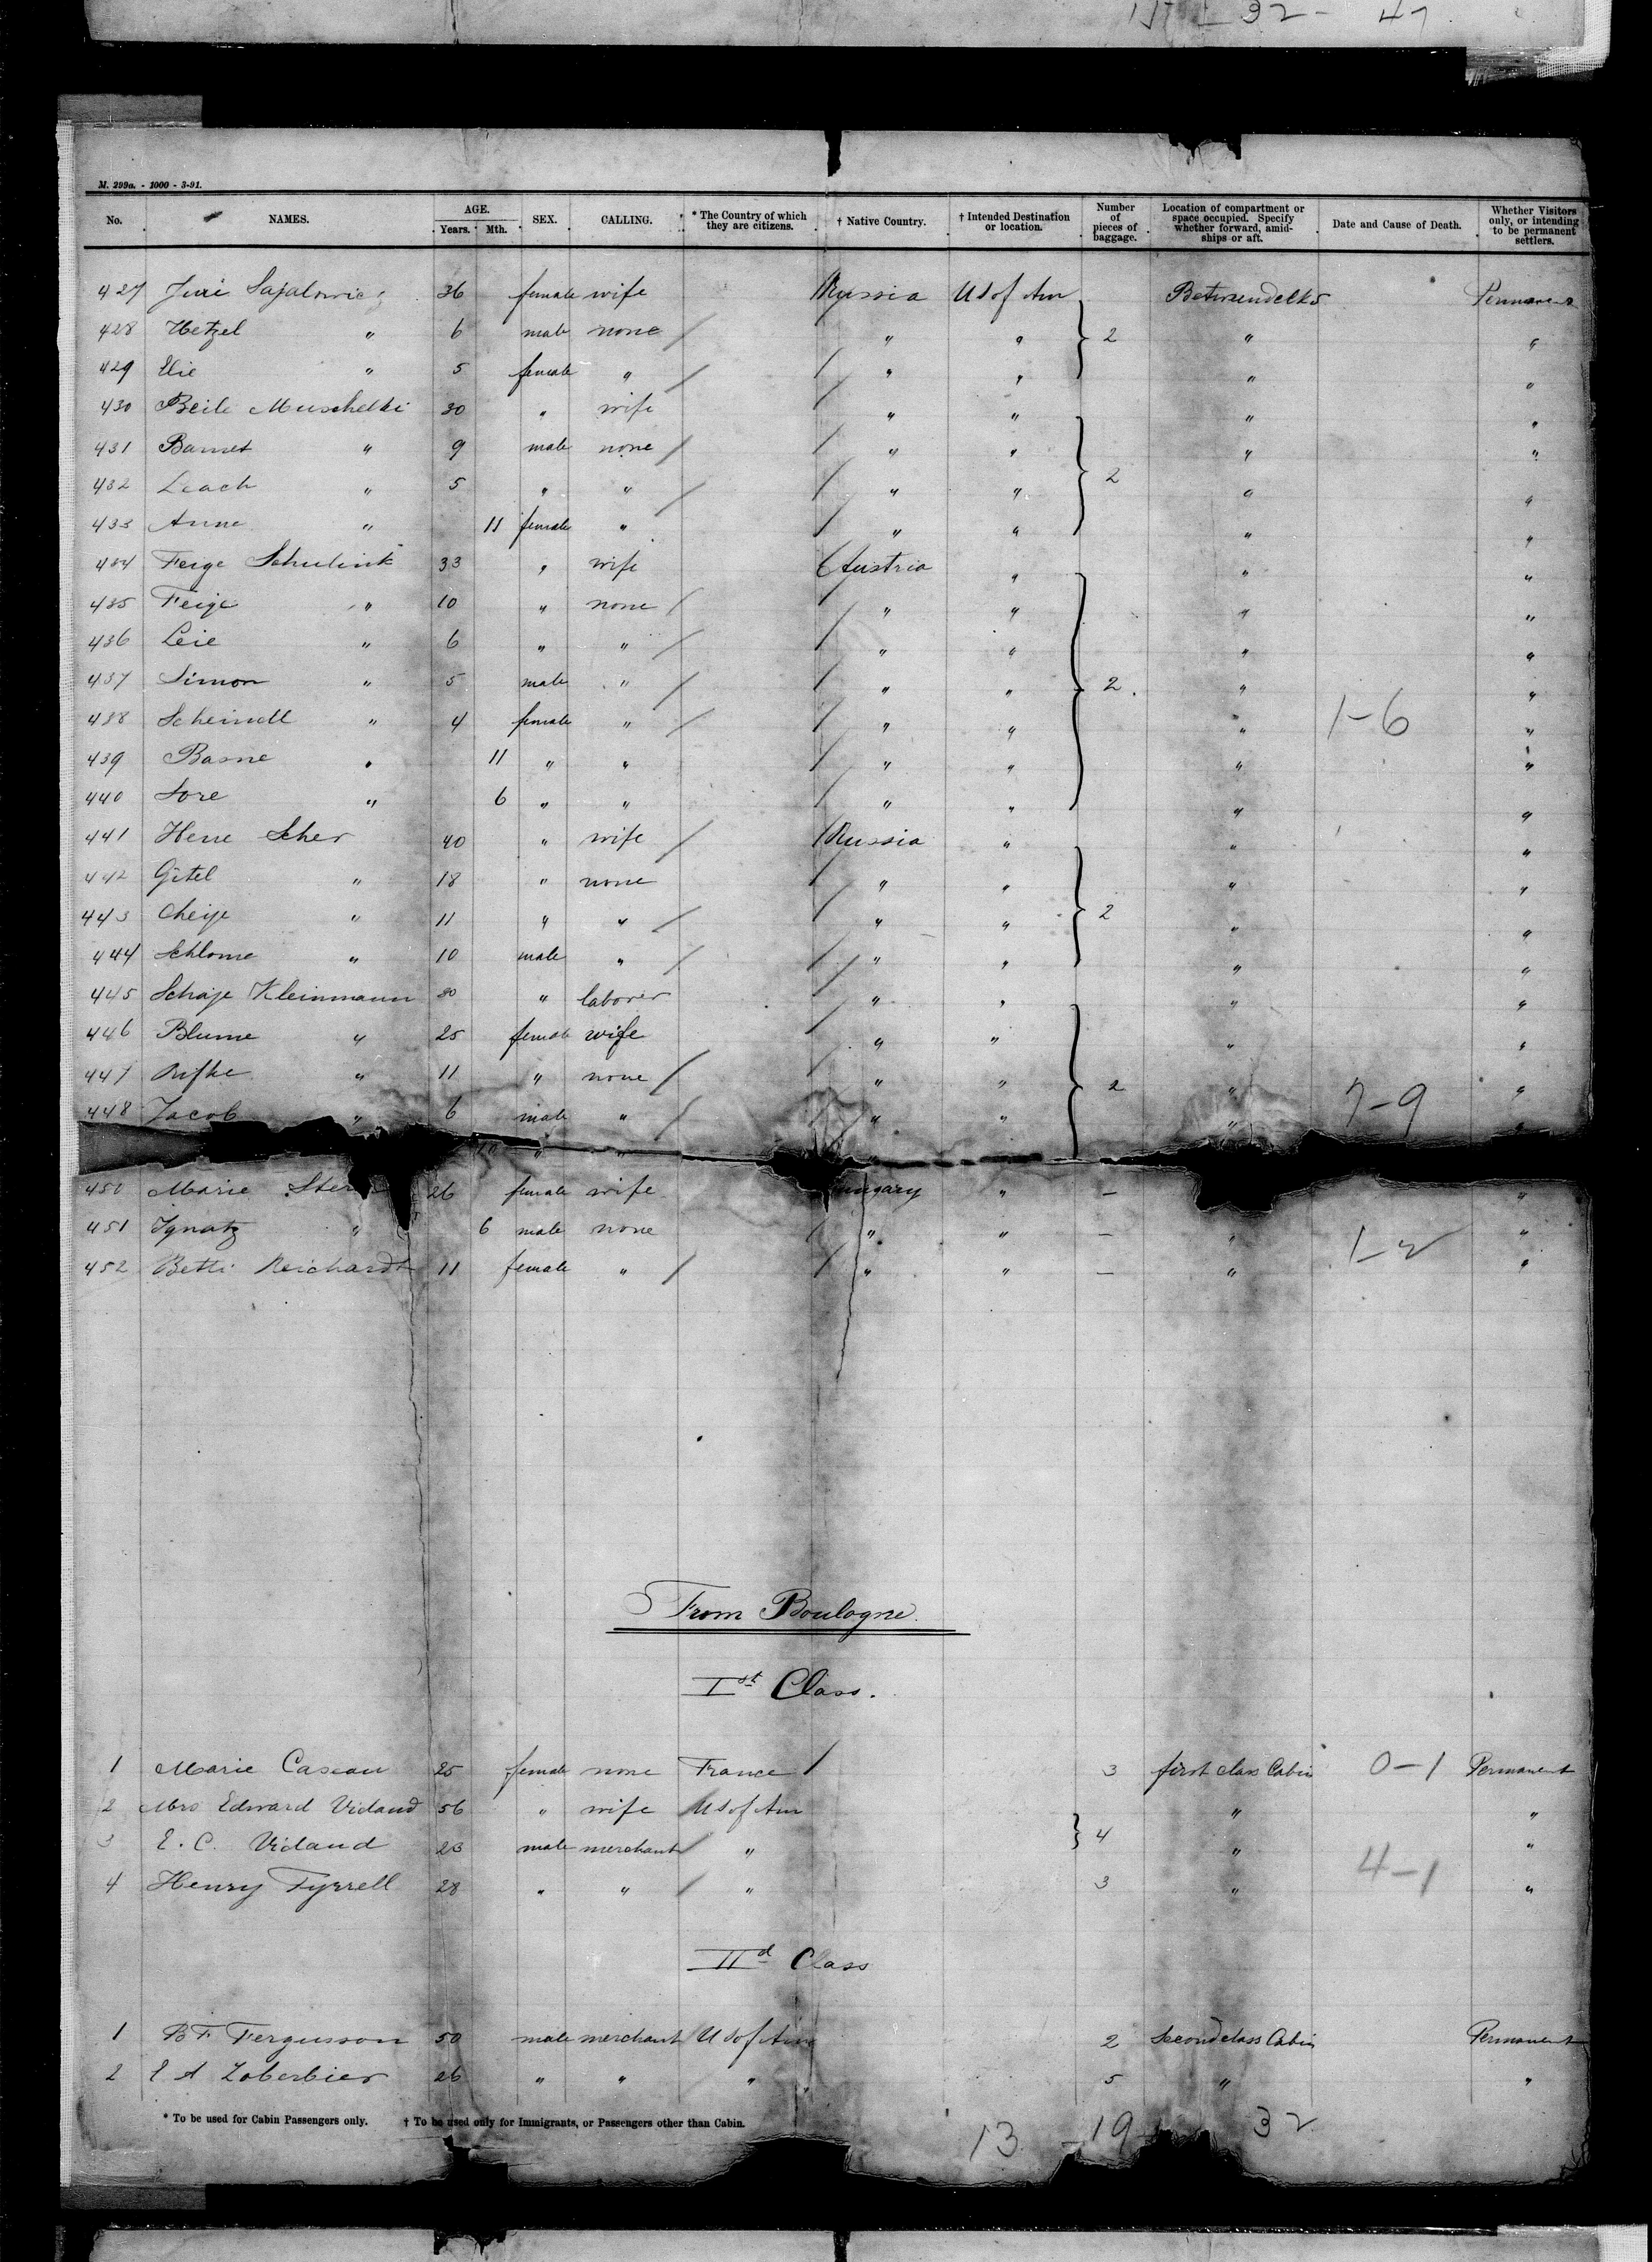 1st - 32 - 47
M. 299a. - 1000 - 3-91.
No. NAMES. AGE. Years. Mth. SEX. CALLING. * The Country of which they are citizens. † Native Country. † Intended Destination or location. Number of pieces of baggage. Location of compartment or space occupied. Specify whether forward, amidships or aft. Date and Cause of Death. Whether Visitors only, or intending to be permanent settlers.
427 36 female wife Russia US of Am Betweendecks Permanent
428 Hetzel " 6 male none / " " 2 " "
429 Elie " 5 female " / / " " " "
430 Beile Muschelki 30 " wife / " " " "
431 Barnet " 9 male none / / " " " "
432 Leach " 5 " " / / " " 2 " "
433 Anne " 11 female " / " " " "
434 Feige Schulink 33 " wife Austria " " "
435 Feige " 10 " none / / " " " "
436 Leie " 6 " " / / " " " "
437 Simon " 5 male " / / " " 2 . " "
438 Scheindl " 4 female " / / " " " 1-6 "
439 Basne " 11 " " / " " " "
440 Sore " 6 " " / " " " "
441 Herre Scher 40 " wife / Russia " " "
442 Gitel " 18 " none / " " " "
443 Cheije " 11 " " / / " " 2 " "
444 Schlome " 10 male " / / " " " "
445 Schaje Kleinmann 30 " laborer / " " " "
446 Blume " 25 female wife / " " " "
447 Rifke " 11 " none / / " " 2 " 7-9 "
448 Jacob " 6 male " / / " " " "
10 " "
450 Marie 26 female wife Hungary " - "
451 Ignatz " 6 male none / " " - " 1-2 "
452 Betti Reichardt 11 female " / / " " - " "
From Boulogne.
Ist Class.
1 Marie Caseau 25 female none France / 3 first class Cabin 0-1 Permanent
2 Mrs Edward Vidaud 56 " wife US of Am " "
3 E. C. Vidaud 23 male merchant / " 4 " "
4 Henry Tyrrell 28 " " / " 3 " 4-1 "
IId Class
1 B F Fergusson 50 male merchant US of Am 2 Second class Cabin Permanent
2 E A Zoberbier 26 " " / " 5 " "
* To be used for Cabin Passengers only. † To be used only for Immigrants, or Passengers other than Cabin.
13 - 19 - 32